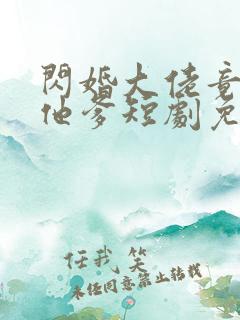 閃婚大佬竟
他爹短劇免
任我笑
未经同意禁止转载